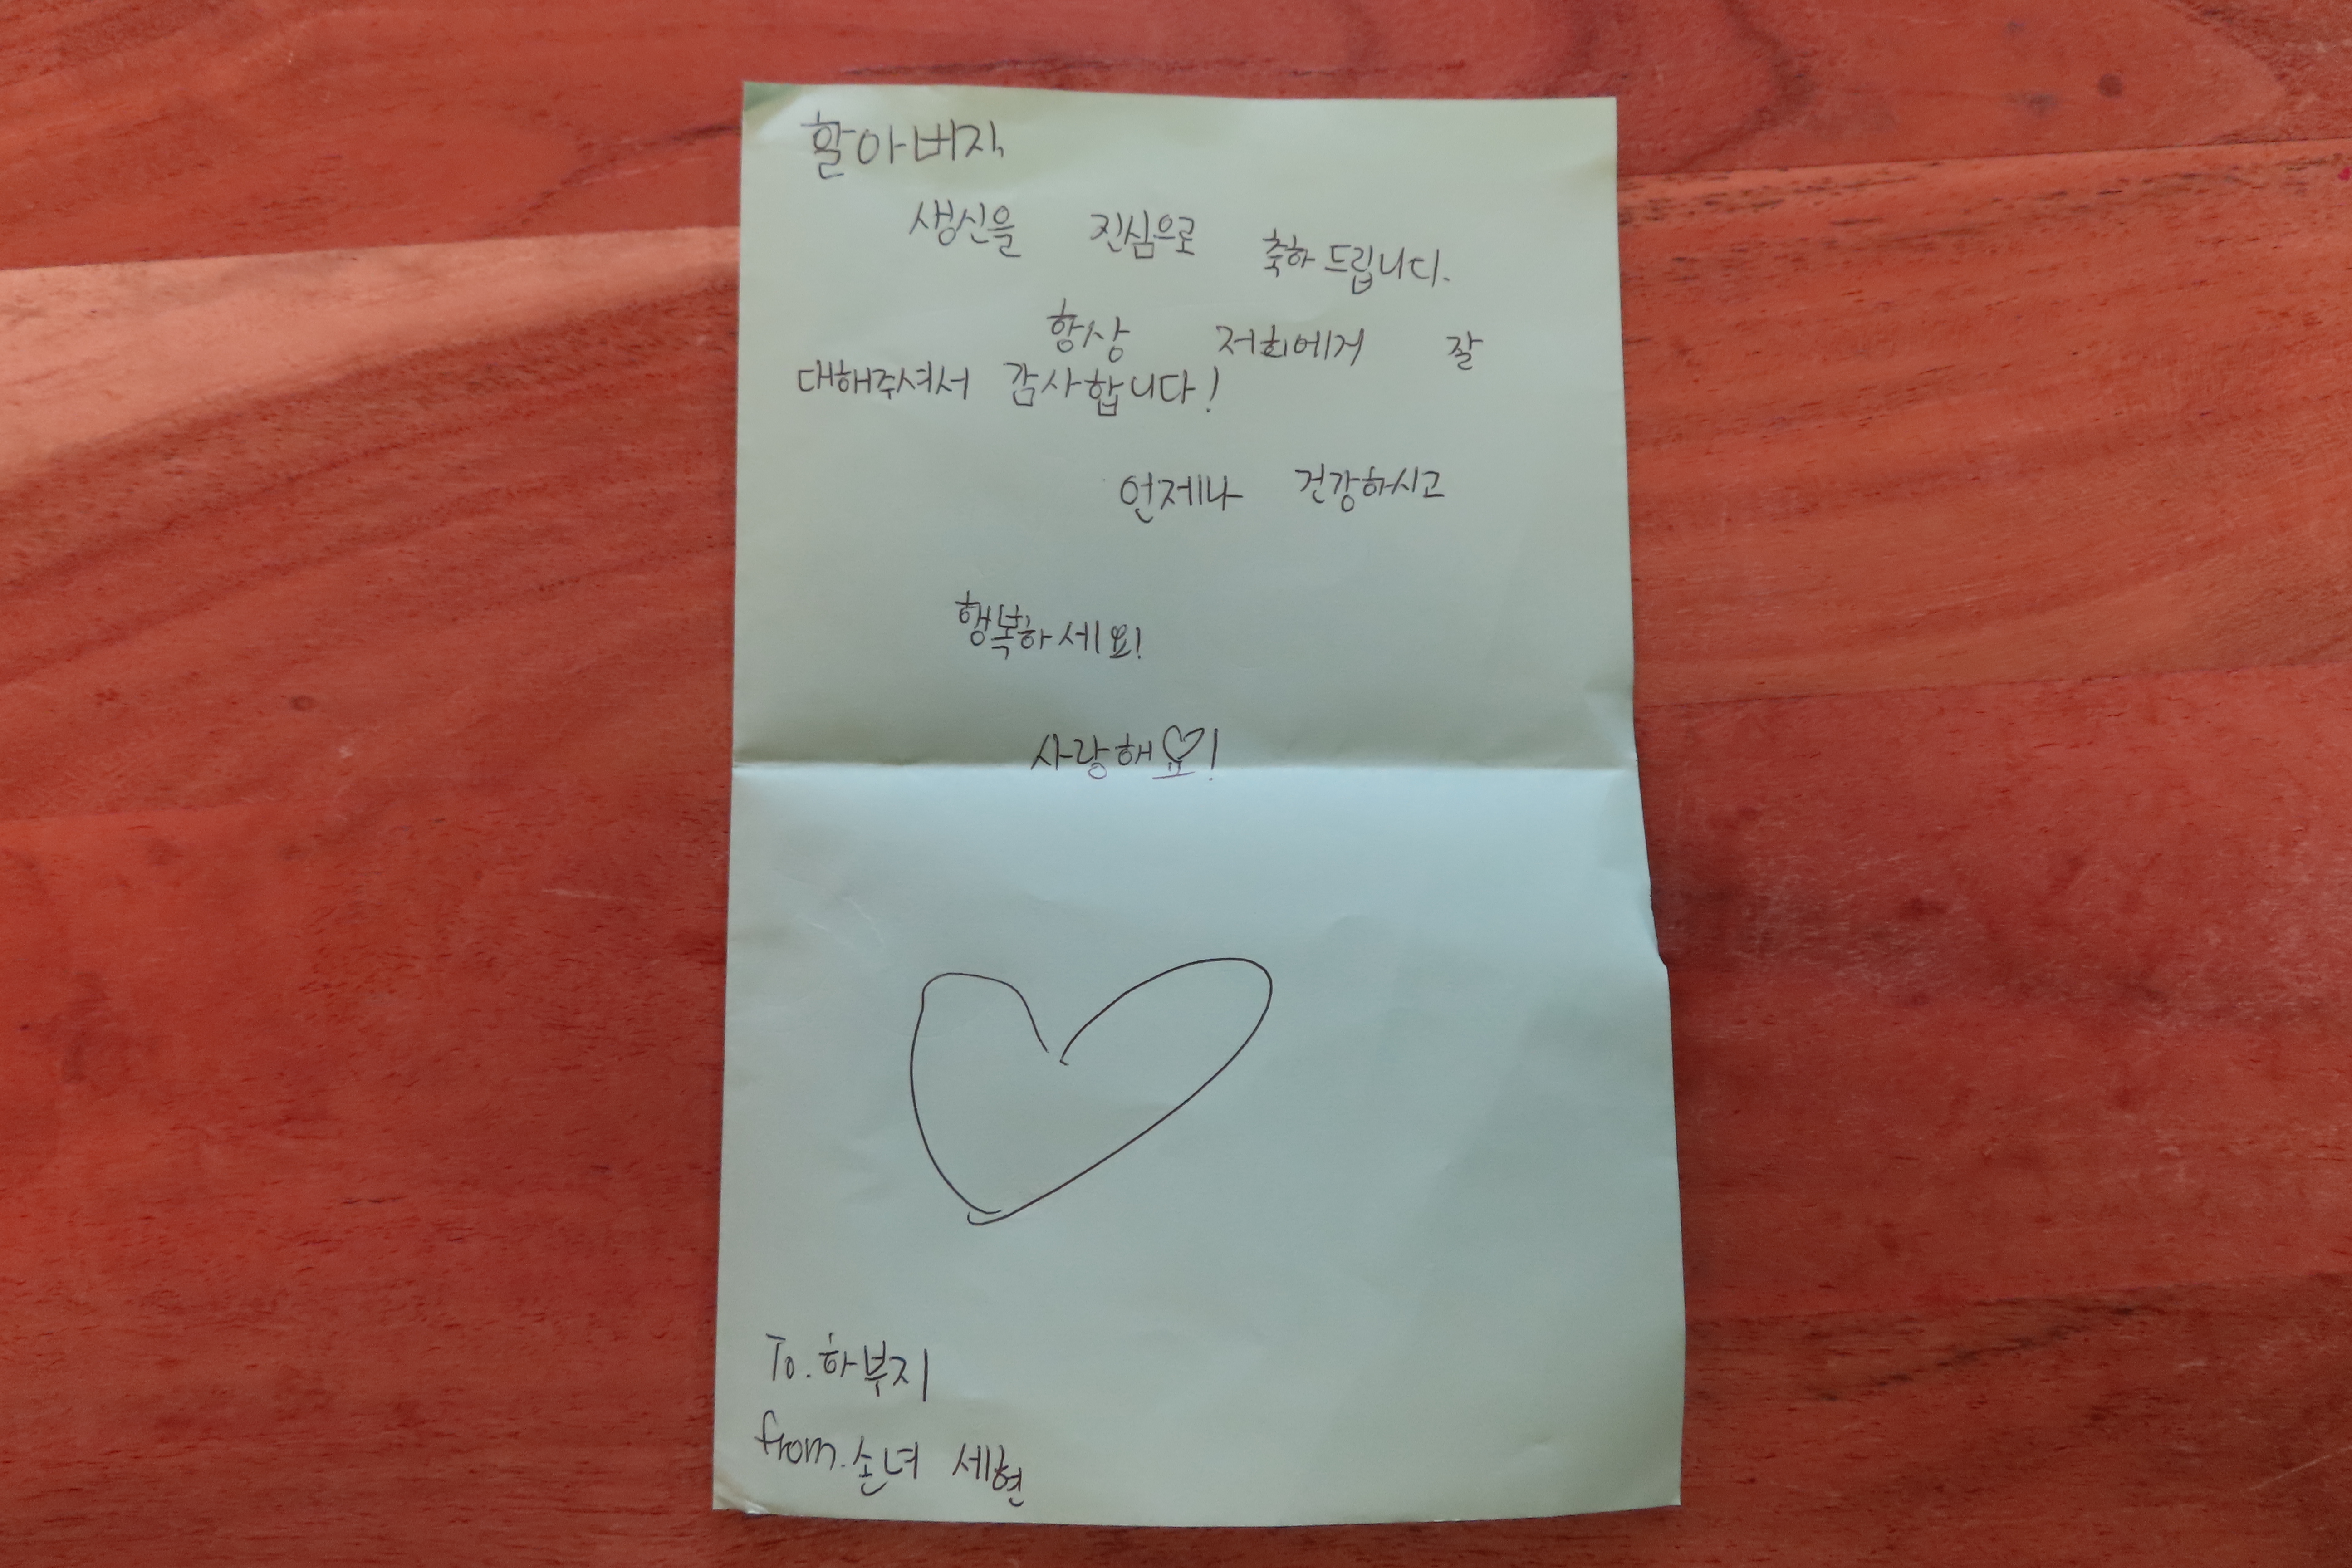 할아버지,
생신을 진심으로 축하 드립니다.
항상 저희에게 잘
대해주셔서 감사합니다!
언제나 건강하시고
행복하세요!
사랑해요!
To. 하부지
from. 손녀 세현